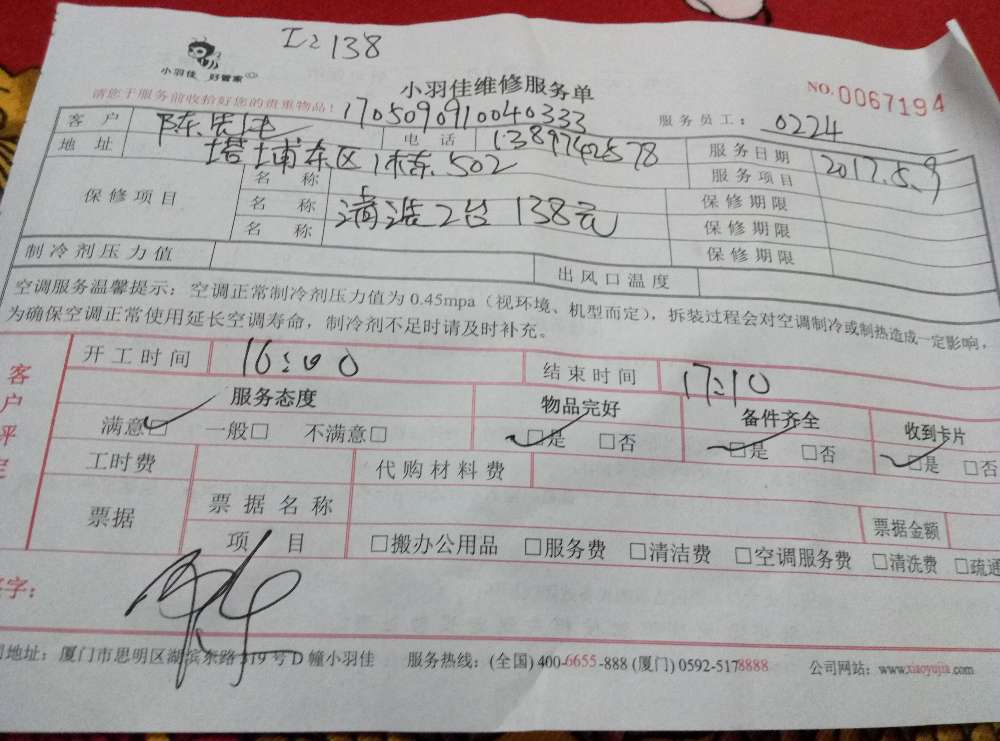 138
小羽佳 好管家
小羽佳维修服务单
NO.0067194
请您于服务前收拾好您的贵重物品!
1705090910040333
服务员工: 0224
客户 陈先生 电话 1389742578 服务日期 2017.5.9
地址 塔埔东区1栋.502 服务项目
保修项目 名称 保修期限
名称 清洗2台 138元 保修期限
名称 保修期限
制冷剂压力值 出风口温度
空调服务温馨提示:空调正常制冷剂压力值为0.45mpa(视环境、机型而定),拆装过程会对空调制冷或制热造成一定影响,
为确保空调正常使用延长空调寿命,制冷剂不足时请及时补充。
客户评定
开工时间 16:00 结束时间 17:10
服务态度 物品完好 备件齐全 收到卡片
满意□ 一般□ 不满意□ □是 □否 □是 □否 □是 □否
工时费 代购材料费
票据 票据名称 票据金额
项目 □搬办公用品 □服务费 □清洁费 □空调服务费 □清洗费 □疏通
字:
地址:厦门市思明区湖滨东路319号D幢小羽佳 服务热线:(全国)400-6655-888 (厦门)0592-5178888 公司网站:www.xiaoyujia.com